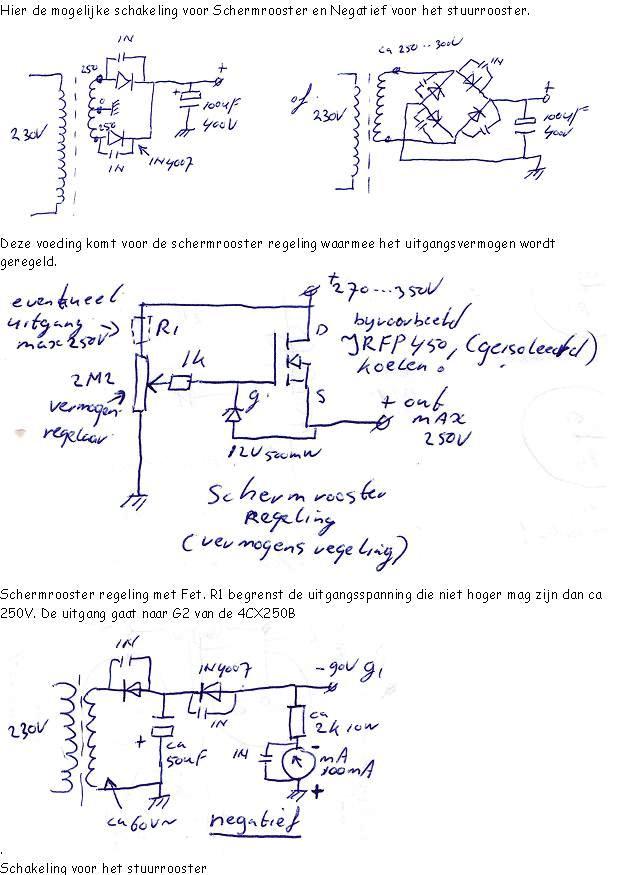 Hier de mogelijke schakeling voor Schermrooster en Negatief voor het stuurrooster.
1N
250
0
250
230V
+
+
100uF
400V
1N
1N4007
of.
ca 250...300V
1N
230V
+
100uF
400V
Deze voeding komt voor de schermrooster regeling waarmee het uitgangsvermogen wordt
geregeld.
eventueel
uitgang
max 250V
R1
1k
2M2
vermogen
regelaar
+270...350V
D
bijvoorbeeld
IRFP450, (geisoleerd)
koelen.
g.
S
+ out
MAX
250V
12V 500mW
Schermrooster
Regeling
(vermogens regeling)
Schermrooster regeling met Fet. R1 begrenst de uitgangsspanning die niet hoger mag zijn dan ca
250V. De uitgang gaat naar G2 van de 4CX250B
1N
1N4007
-90V g1
230V
+
ca
50uF
1N
ca
2k 10W
1N
-
mA
100mA
+
ca 60V~
negatief
.
Schakeling voor het stuurrooster